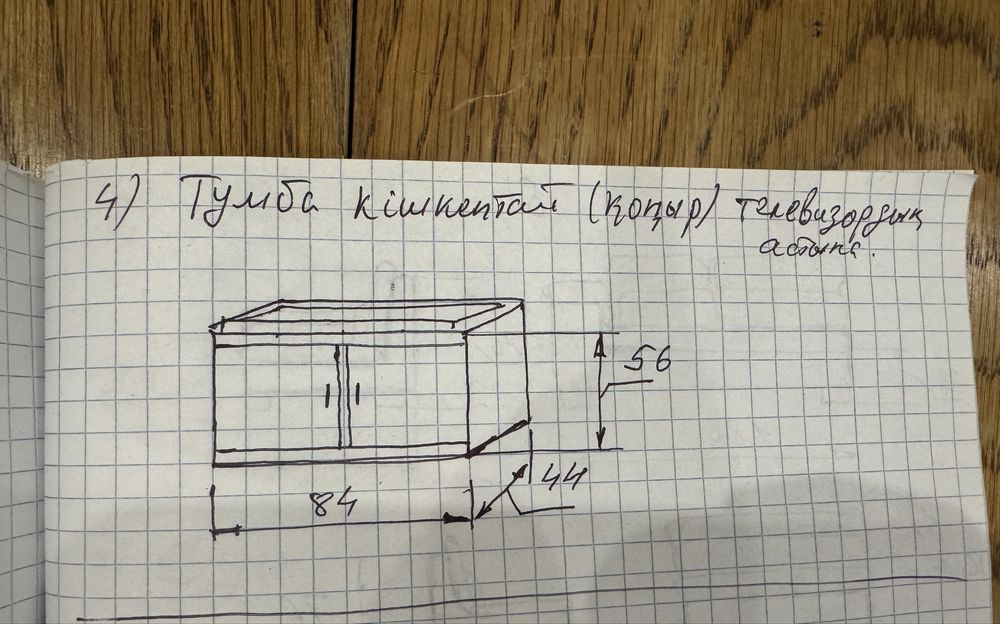 4) Тумба кішкентай (қоңыр) телевизордың
астына.
56
44
84